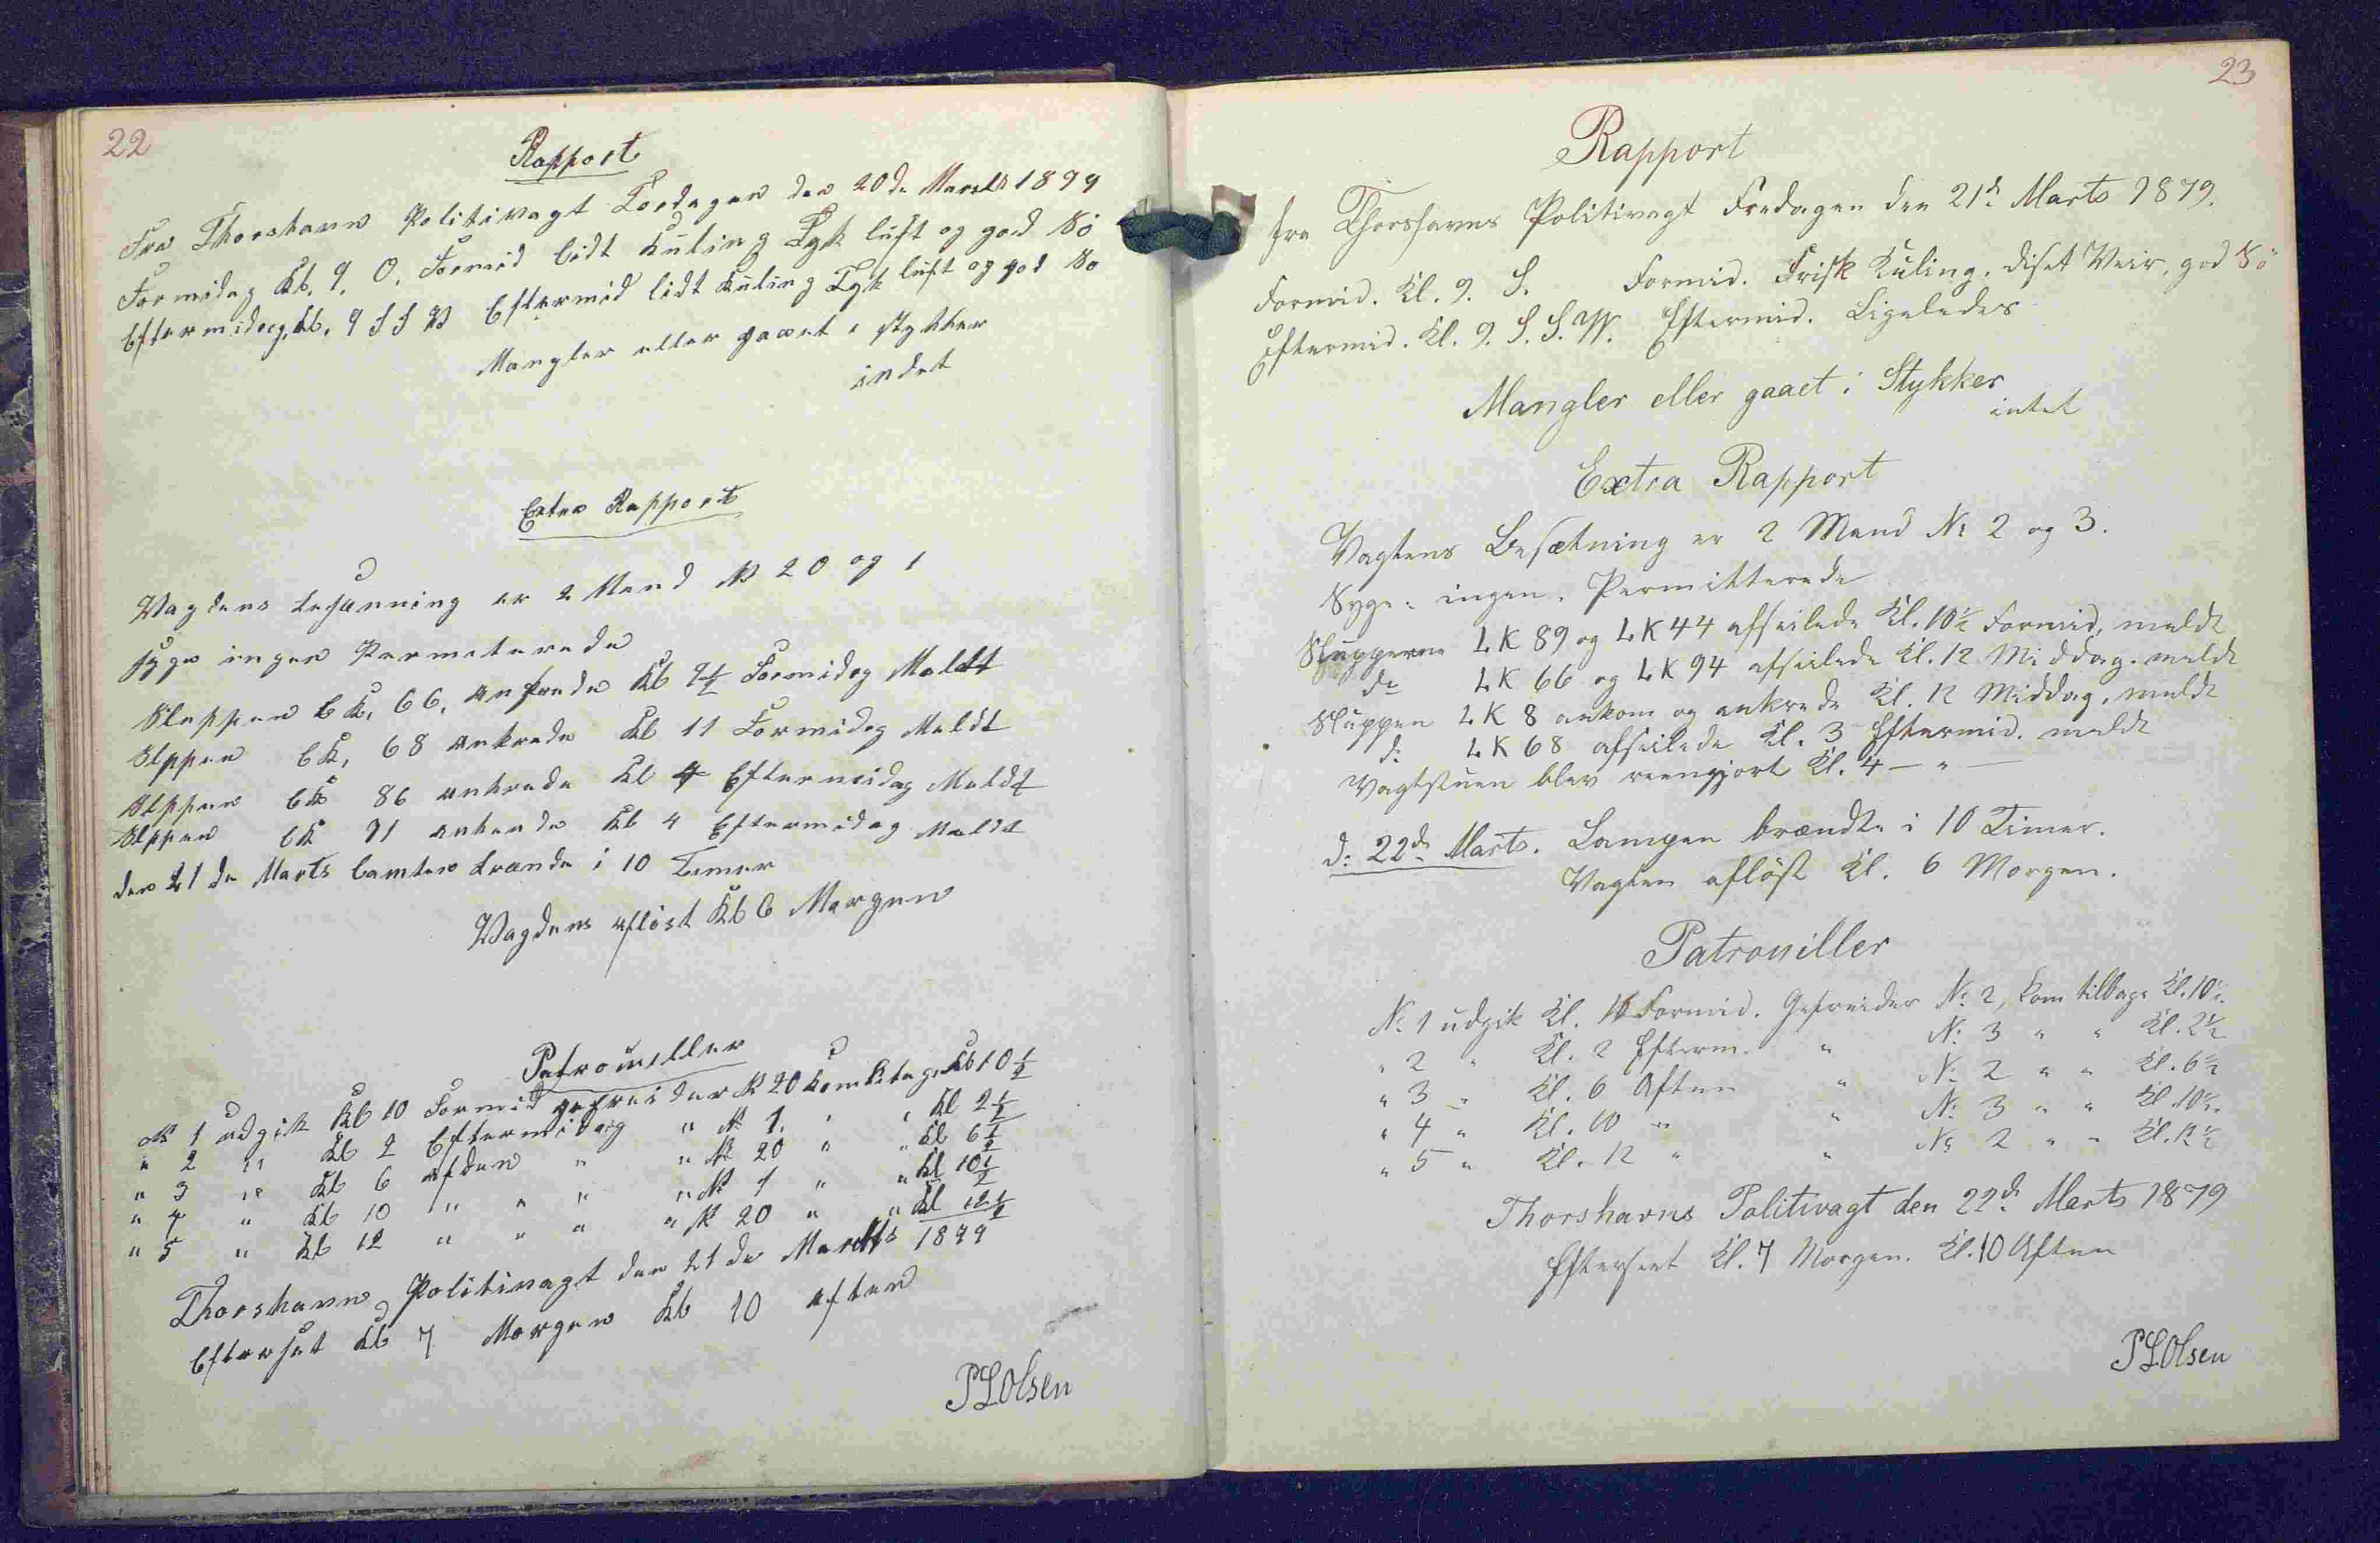 22
Rapport
Fra Thorshavn Politivagt Tordagen den 20de Marts 1879
Formidag Kl. 9. O. Formid lidt Kuling Tyk luft og god Sö
Eftermidag Kl. 9 S S W Eftermid lidt Kuling Tyk luft og god So
Mangler eller gaaet i stykker
indet
Extra Rapport
Vagdens besætning er 2 Mand N 20 og 1
syge ingen Permeterede
Sluppen LK. 66. ankrede Kl 9½ Formidag Meldt
Slppen LK. 68 ankrede Kl 11 Formidag Meldt
Slppen LK 86 ankrede Kl 4 Eftermidag Meldt
Slppen LK 71 ankrede Kl 4 Eftermidag Meldt
den 21de Marts Lamten brande i 10 Timer
Vagdens aflöst Kl 6 Morgen
Patrouiller
N 1 udgik Kl 10 Formid gefreider N 20 kom tilbage Kl 10½
" 2 " Kl 2 Eftermidag " N 1. " " Kl 2½
" 3 " Kl 6 afden " " N 20 " " Kl 6½
" 4 " Kl 10 " " " " N 1 " " Kl 10½
" 5 " Kl 12 " " " " N 20 " " Kl 12½
Thorshavn Politivagt den 21de Marts 1879
Efterset Kl 7 Morgen Kl 10 aften
PLOlsen
23
Rapport
fra Thorshavns Politivagt Fredagen den 21de Marts 1879.
Formid. Kl. 9. S. Formid. Frisk Kuling. diset Veir, god Sö
Eftermid. Kl. 9. S. S. W. Eftermid. Ligeledes
Mangler eller gaaet i Stykker
intet
Extra Rapport
Vagtens Besætning er 2 Mand No 2 og 3.
Syge: ingen. Permitterede
Slupperne LK 89 og LK 44 afseilede Kl. 10½ Formid, meldt
do LK 66 og LK 94 afseilede Kl. 12 Middag. meldt
Sluppen LK 8 ankom og ankrede Kl. 12 Middag, meldt
do LK 68 afseilede Kl. 3 Eftermid. meldt
Vagtstuen blev reengjort Kl. 4 — " —
d: 22de Marts. Lampen brændte i 10 Timer.
Vagten aflöst Kl. 6 Morgen.
Patrouiller
No 1 udgik Kl. 10 Formid. Gefreider No 2, kom tilbage Kl. 10½.
" 2 " Kl. 2 Efterm. " No 3 " " Kl. 2½
" 3 " Kl. 6 Aften " No 2 " " Kl. 6½
" 4 " Kl. 10 " " No 3 " " Kl. 10½
" 5 " Kl. 12 " " No 2 " " Kl. 12½
Thorshavns Politivagt den 22de Marts 1879
Efterseet Kl. 7 Morgen. Kl. 10 Aften
PLOlsen